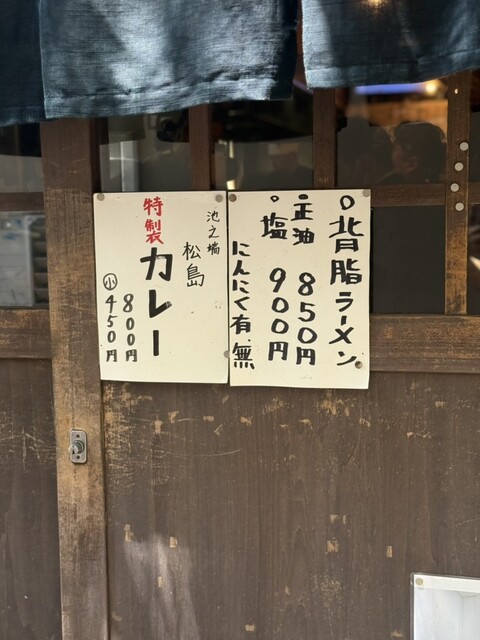 ○背脂ラーメン。
・正油 850円
○塩 900円
にんにく有.無
池之端
松島
特製カレー
800円
小450円